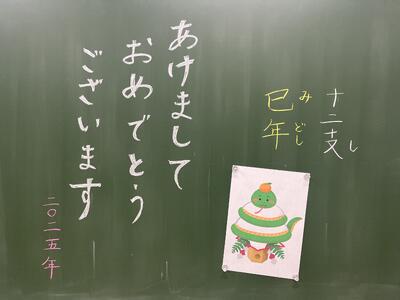 十二支
し
巳年
み
どし
あけまして
おめでとう
ございます
二〇二五年